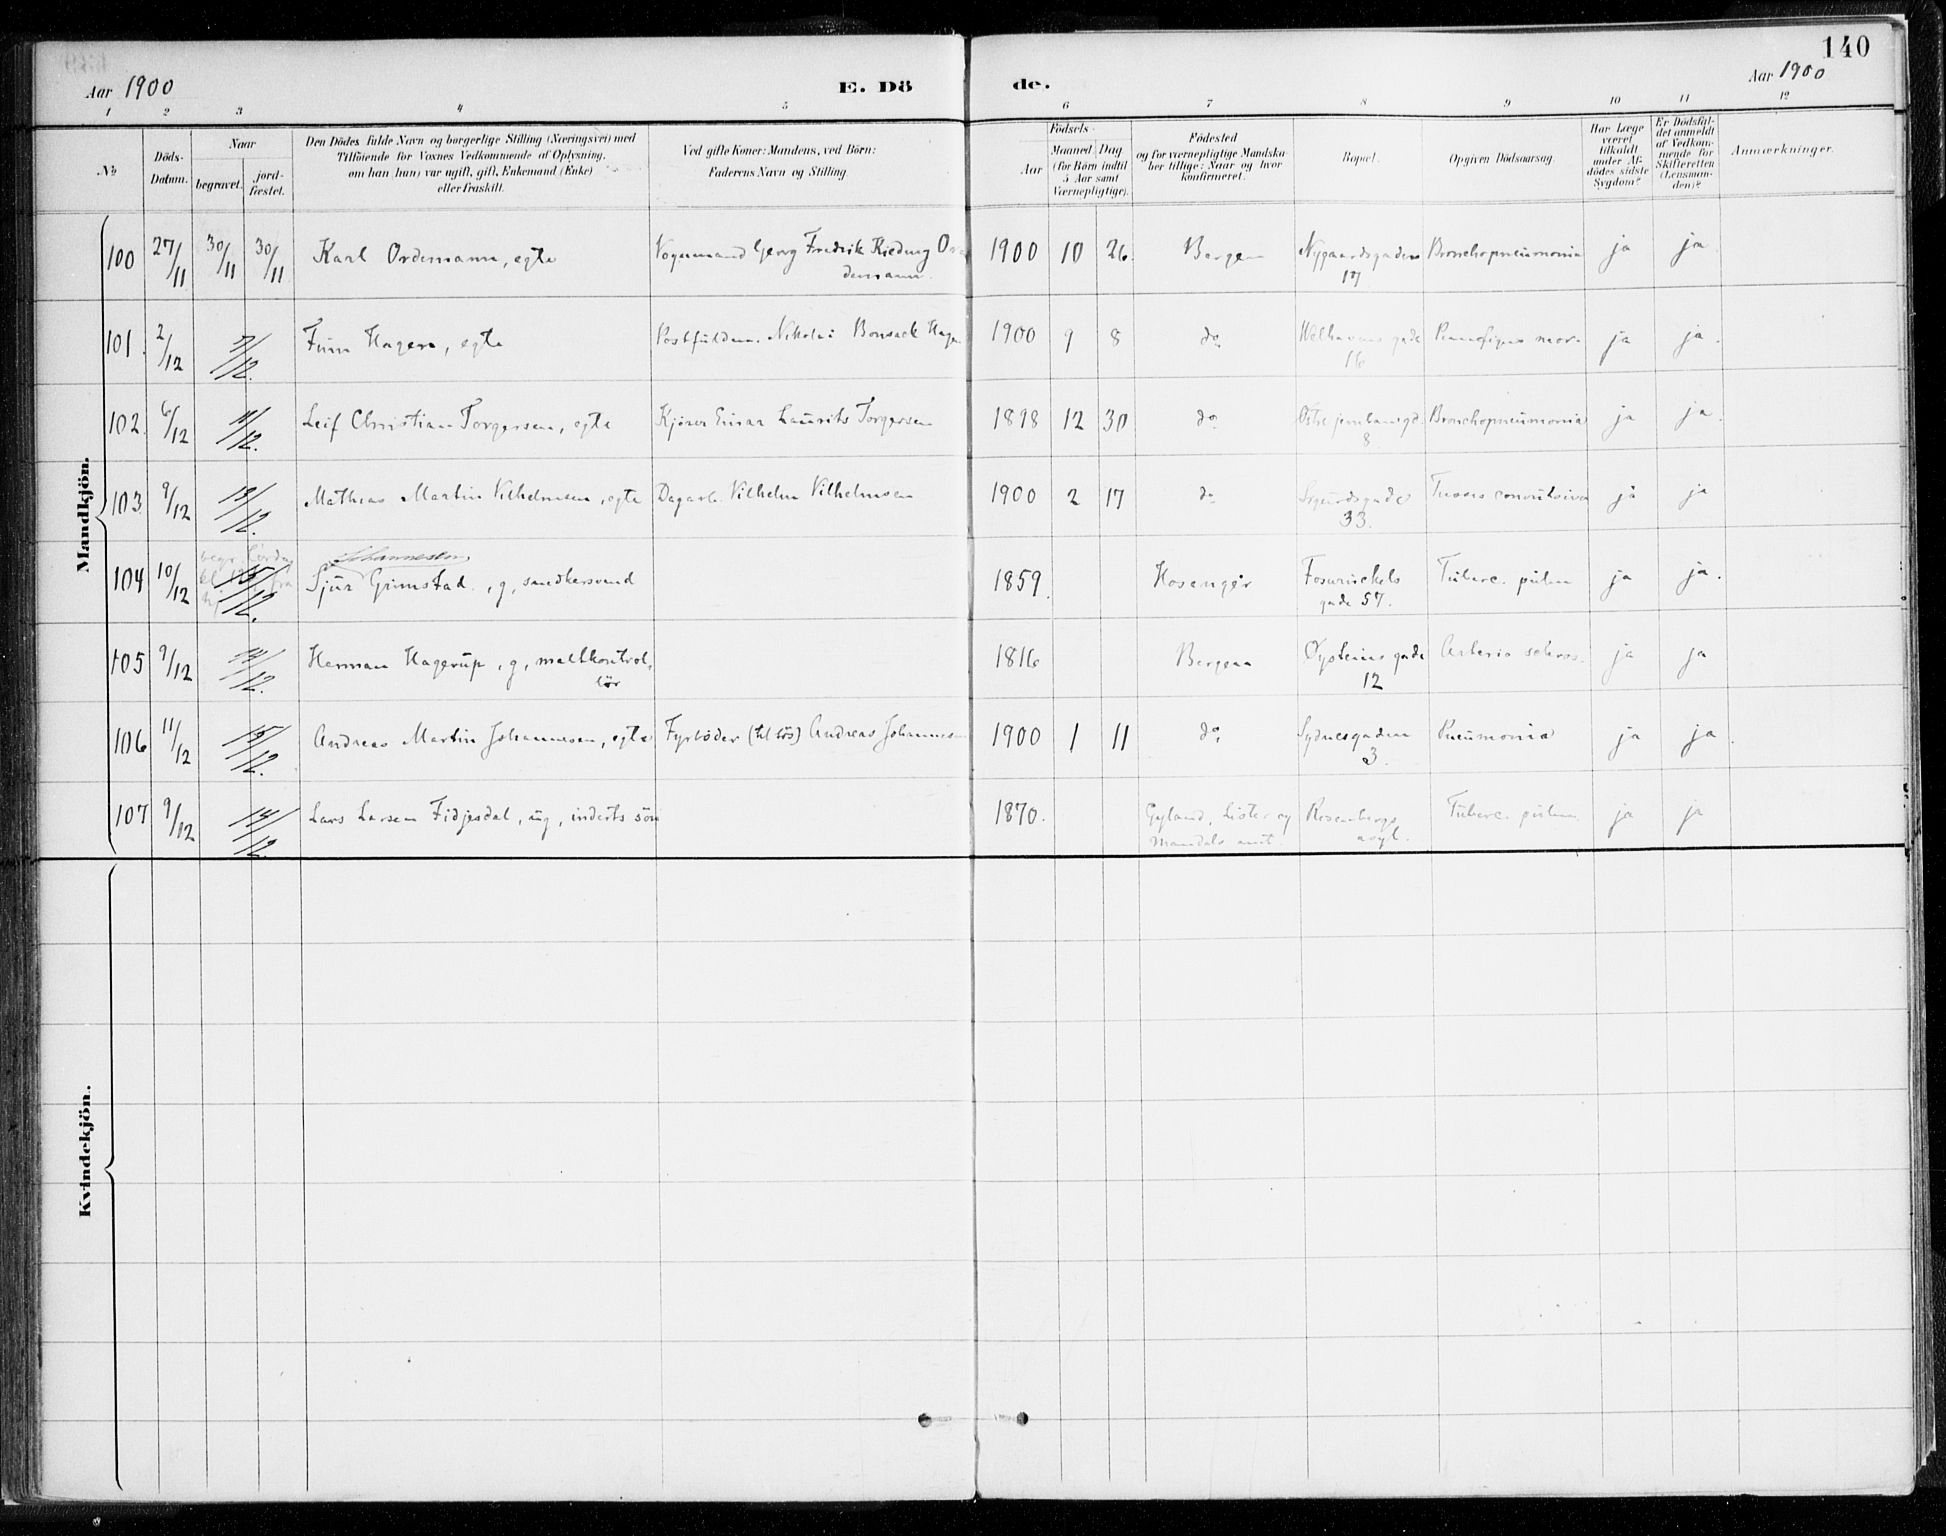 140
Aar 1900
E. Dö
de.
Aar 1900
1 2 3 4 5 6 7 8 9 10 11 12
No
Döds-
Datum.
Naar
begravet.
jord-
fæstet.
Den Dödes fulde Navn og borgerlige Stilling (Næringsvei) med
Tilföiende for Voxnes Vedkommende af Oplysning,
om han (hun) var ugift, gift, Enkemand (Enke)
eller fraskilt.
Ved gifte Koner: Mandens, ved Börn:
Faderens Navn og Stilling.
Födsels-
Aar
Maaned. Dag
(for Börn indtil
5 Aar samt
Værnepligtige).
Födested
og for værnepligtige Mandska-
ber tillige: Naar og hvor
konfirmeret.
Bopæl.
Opgiven Dödsaarsag.
Har Læge
været
tilkaldt
under Af-
dödes sidste
Sygdom?
Er Dödsfal-
det anmeldt
af Vedkom-
mende for
Skifteretten
(Lensman-
den)?
Anmærkninger.
Mandkjön.
100 27/11 30/11 30/11 Karl Ordemann, egte Vognmand Georg Fredrik Rieding Or- 1900 10 26 Bergen Nygaardsgaden Bronchopneumonia ja ja
demann. 17
101. 2/12 7/12. Finn Hagen, egte Postfuldm. Nikolai Bonsack Hagen 1900 9 8 do Welhavens gade ja ja.
16
102. 6/12 11/12. Leif Christian Torgersen, egte Kjörer Einar Laurits Torgersen 1898 12 30 do Östre jernbanegd. Bronchopneumonia ja ja.
8
103. 9/12 12. Mathias Martin Vilhelmsen, egte Dagarb. Vilhelm Vilhelmsen 1900 2 17 do Sigurdsgade Tussis convulsiva ja ja
33.
Johannessen
104 10/12 15/12. Sjur Grimstad, g, snedkersvend 1859. Hosanger Fosswinckels Tuberc. pulm ja ja.
gade 57.
105 9/12 14/12. Herman Hagerup, g, maltkontrol- 1816 Bergen Øysteins gade Arterio scleros. ja ja
lör 12
106 11/12 15/12. Andreas Martin Johannesen, egte Fyrböder (tilsös) Andreas Johannesen 1900 1 11 do, Sydnesgaden Pneumonia ja ja.
3.
107 9/12 14/12. Lars Larsen Fidjesdal, ug, inderts sön 1870. Gyland, Lister og Rosenbergs Tuberc. pulm. ja ja
Mandals amt. asyl.
Kvindekjön.